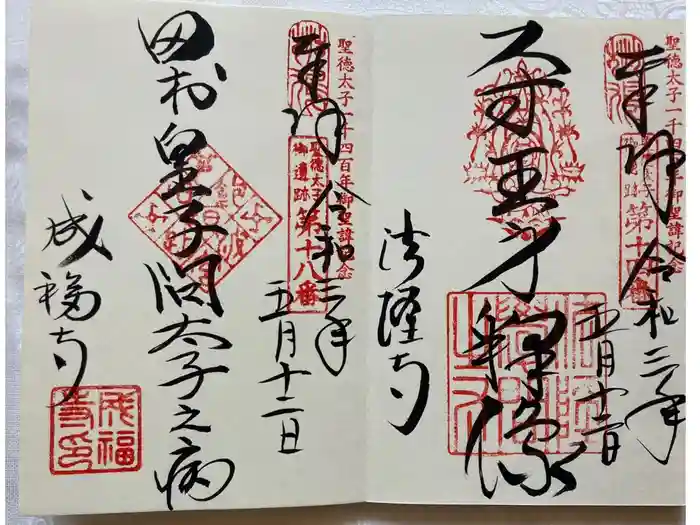 聖徳太子一千四百年御聖諱記念
奉拝
聖徳太子
御遺跡
第十四番
令和三年
五月十二日
尺寸王身釈像
法隆寺
聖徳太子一千四百年御聖諱記念
奉拝
聖徳太子
御遺跡
第十八番
令和三年
五月十二日
田村皇子問太子之病
成福寺
成福
寺印